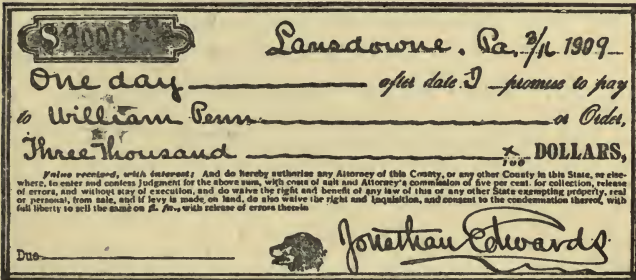 $3000
Lansdowne, Pa. 3/11 1909
One day after date I promise to pay
to William Penn or Order,
Three Thousand x/100 DOLLARS,
Value received, with interest; And do hereby authorize any Attorney of this County, or any other County in this State, or else-
where, to enter and confess Judgment for the above sum, with costs of suit and Attorney's commission of five per cent. for collection, release
of errors, and without stay of execution, and do waive the right and benefit of any law of this or any other State exempting property, real
or personal, from sale, and if levy is made on land, do also waive the right and Inquisition, and consent to the condemnation thereof, with
full liberty to sell the same on fi. fa., with release of errors therein
Due
Jonathan Edwards